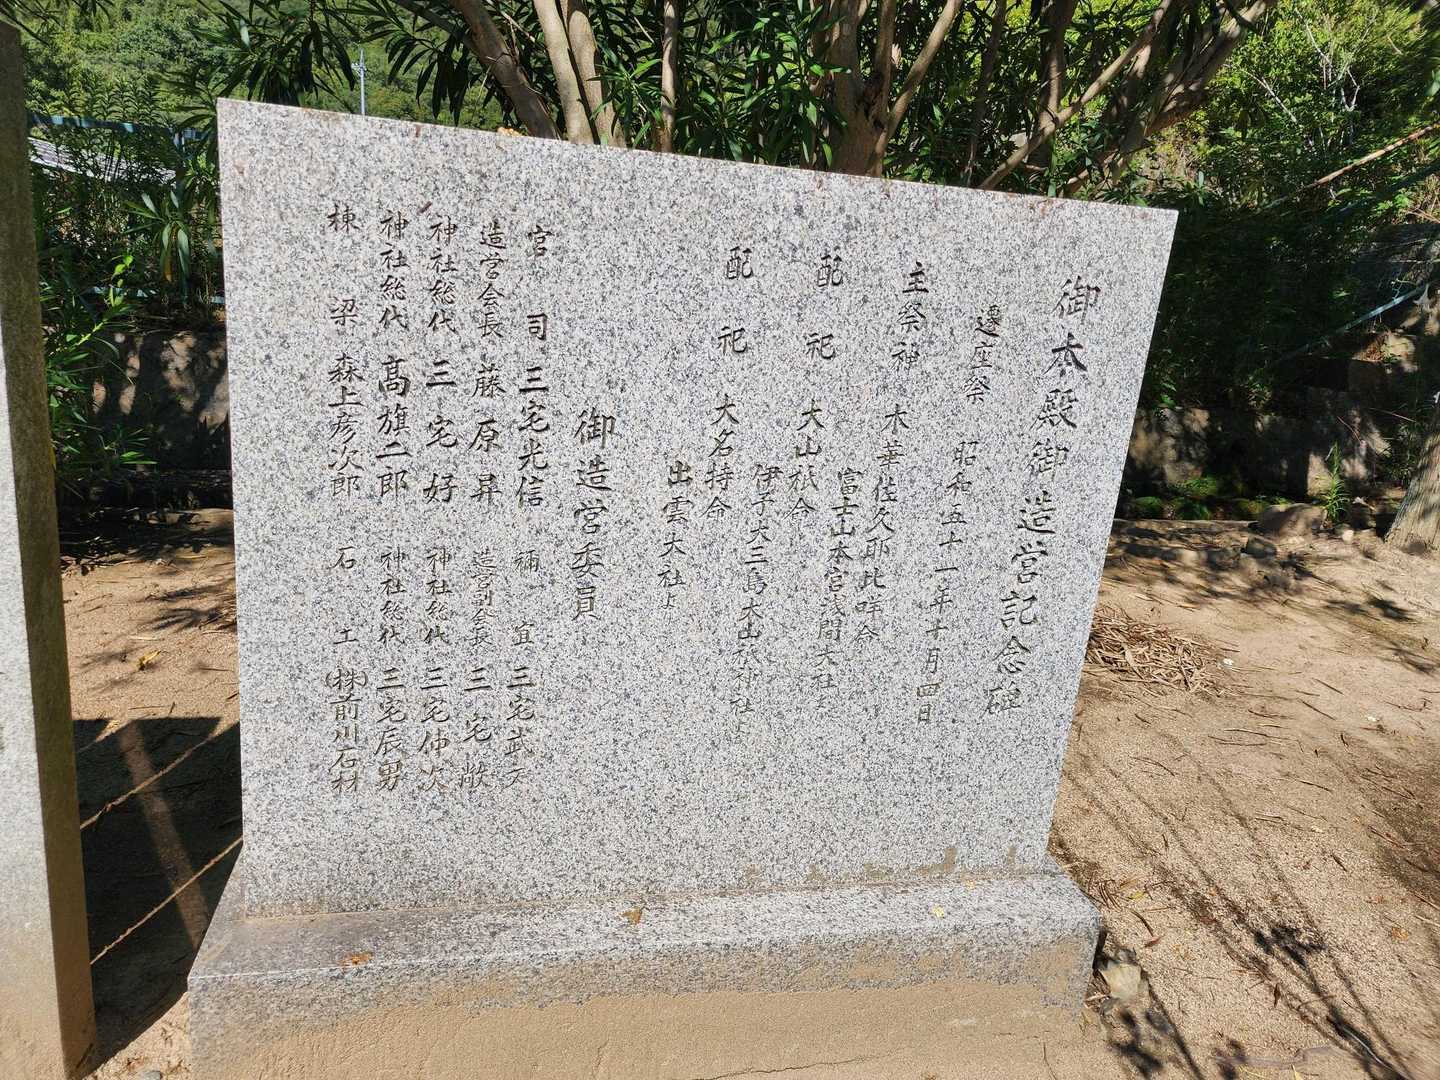 御本殿御造営記念碑
遷座祭 昭和五十一年十月四日
主祭神 木華佐久耶比咩命
富士山本宮浅間大社より
配祀 大山祇命
伊予大三島大山祇神社より
配祀 大名持命
出雲大社より
御造営委員
宮司 三宅光信 禰宜 三宅武
造営会長 藤原昇 造営副会長 三宅敞
神社総代 三宅好 神社総代 三宅仲次
神社総代 高旗二郎 神社総代 三宅辰男
棟梁 森上彦次郎 石工 (株)前川石材